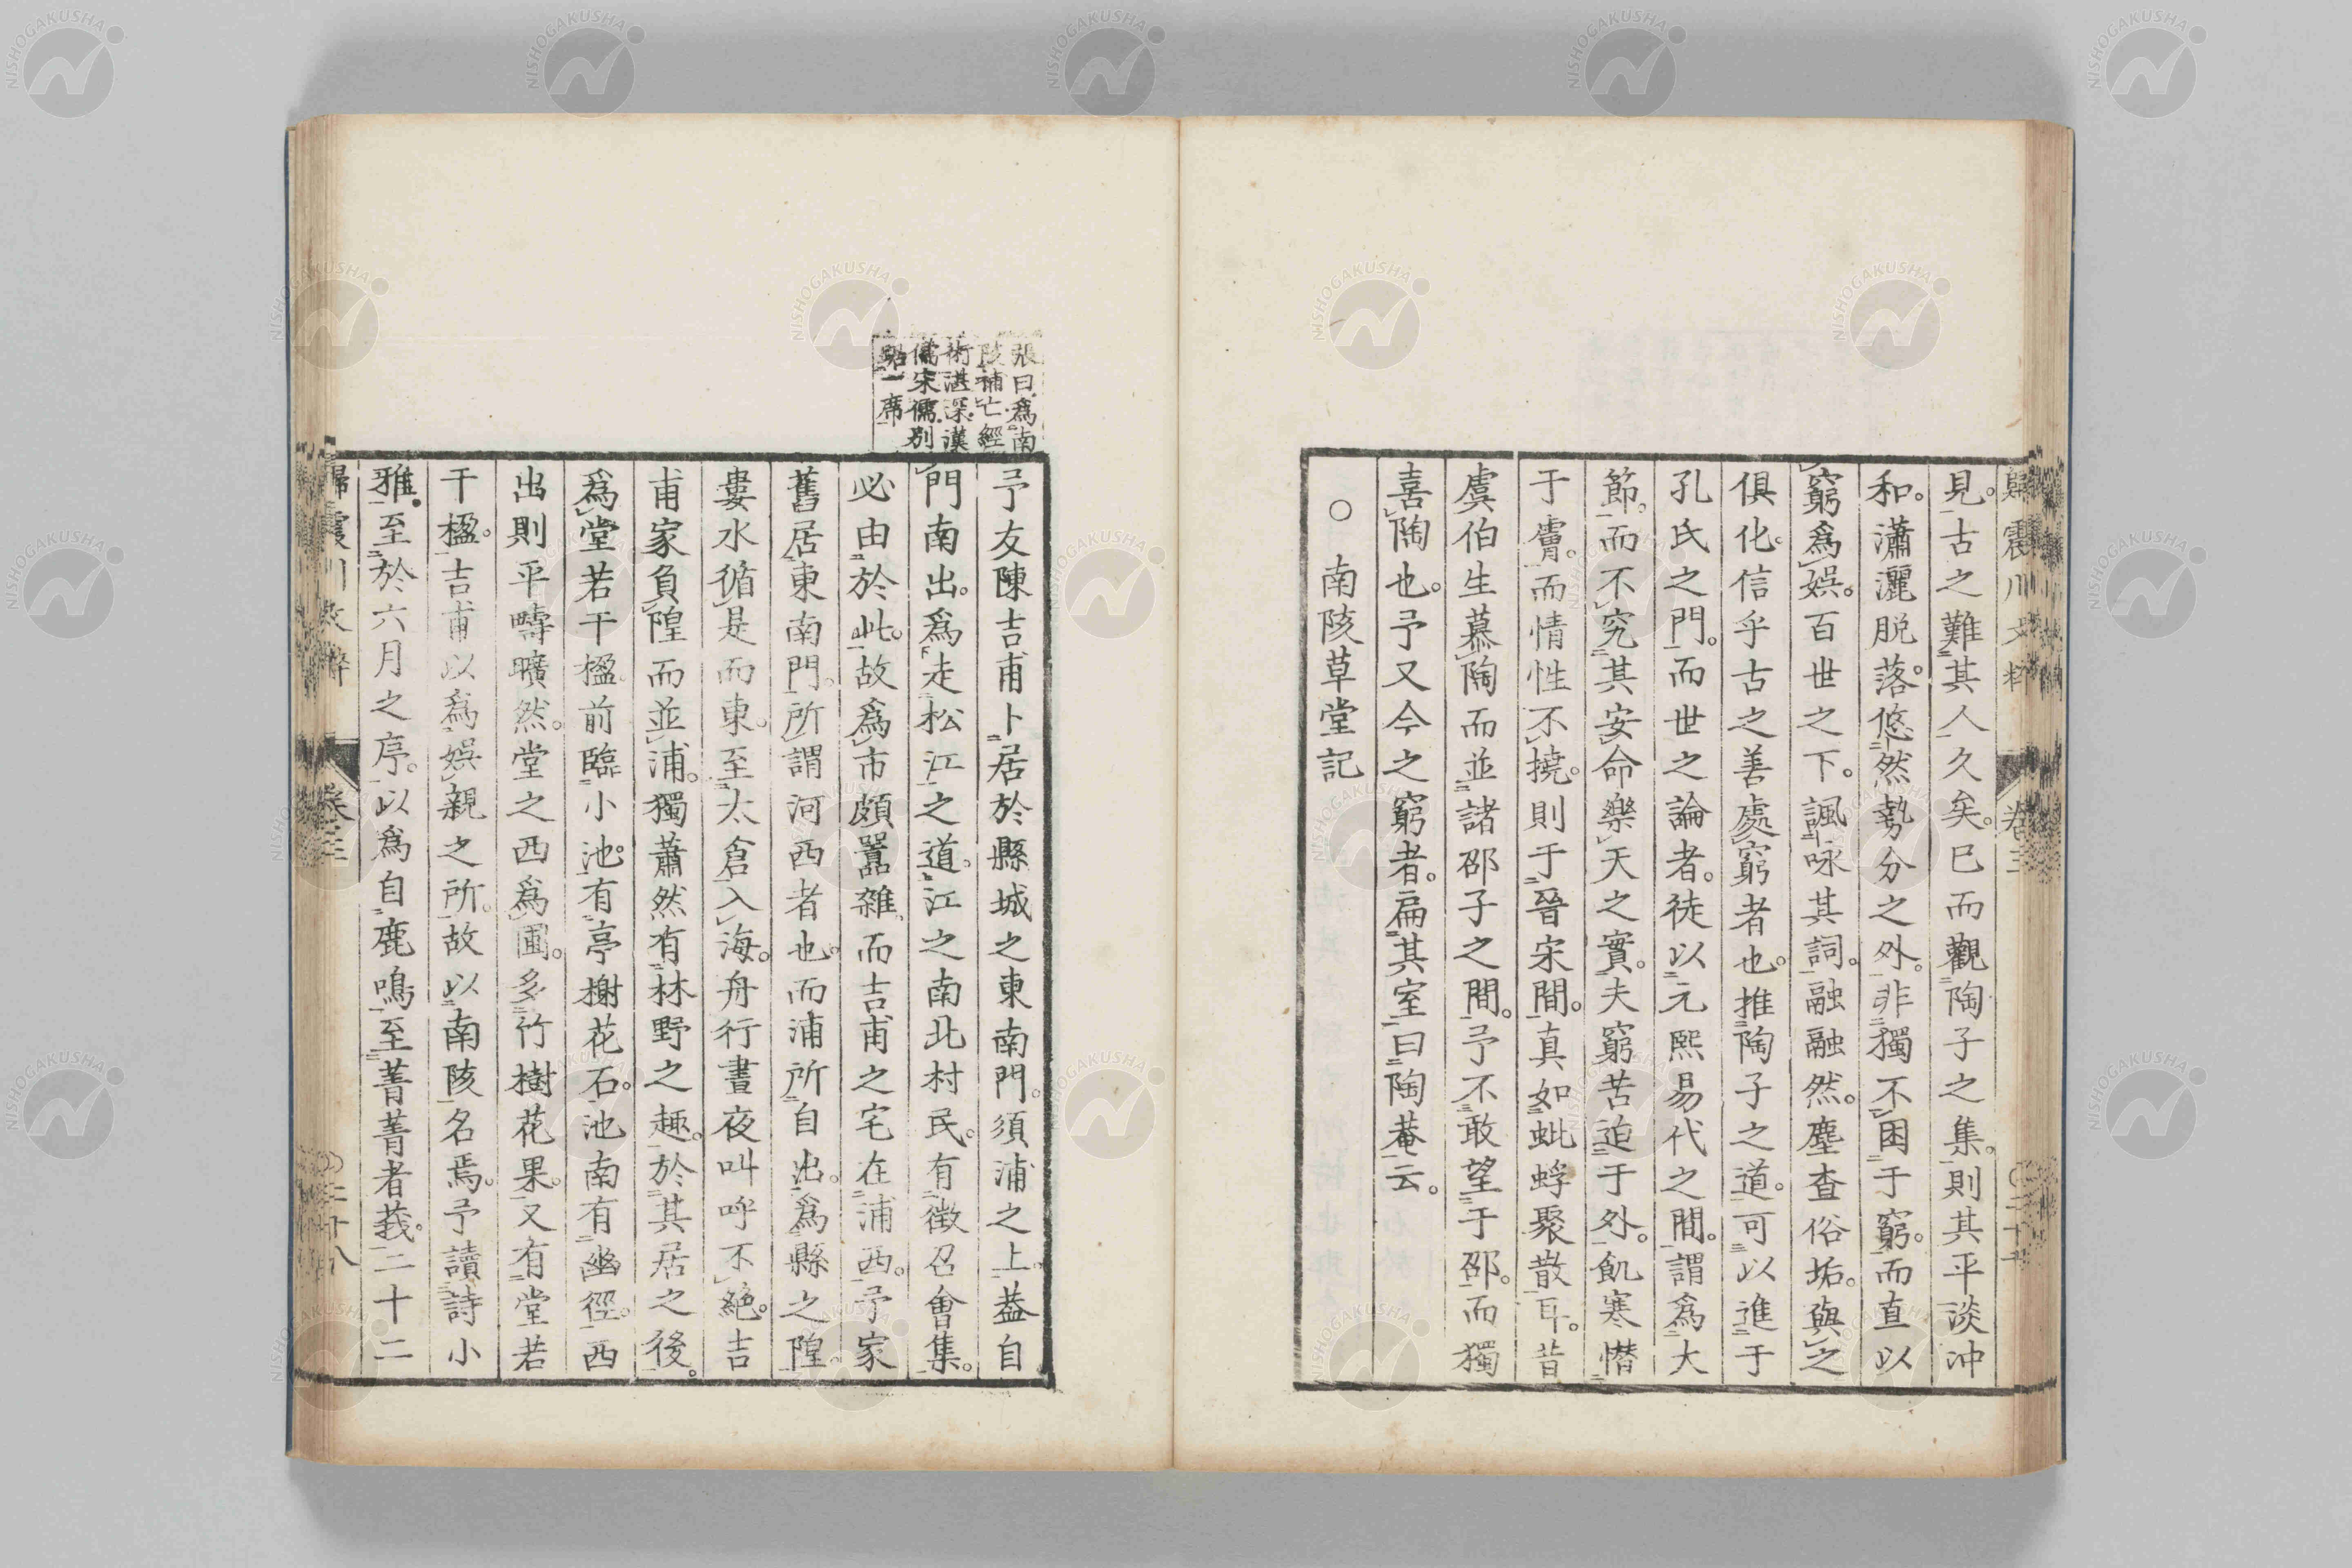 見。古之難其人久矣。已而觀陶子之集。則其平淡冲
和。瀟灑脱落。悠然勢分之外。非獨不困于窮。而直以
窮爲娯。百世之下。諷咏其詞。融融然。塵查俗垢。與之
俱化。信乎古之善處窮者也。推陶子之道。可以進于
孔氏之門。而世之論者。徒以元熙易代之間。謂爲大
節。而不究其安命樂天之實。夫窮苦迫于外。飢寒憯
于膚。而情性不撓。則于晉宋間。真如蚍蜉聚散耳。昔
虞伯生慕陶而並諸邵子之間。予不敢望于邵。而獨
喜陶也。予又今之窮者。扁其室曰陶菴云。
○南陔草堂記
張曰爲南
陔補亡經
術湛深漢
儒宋儒別
踞一席
予友陳吉甫卜居於縣城之東南門。須浦之上。葢自
門南出。爲走松江之道。江之南北村民。有徵召會集。
必由於此。故爲市頗囂雜。而吉甫之宅在浦西。予家
舊居東南門。所謂河西者也。而浦所自出。爲縣之隍。
婁水循是而東。至太倉入海。舟行晝夜叫呼不絕。吉
甫家負隍而並浦。獨蕭然有林野之趣。於其居之後。
爲堂若干楹。前臨小池。有亭榭花石。池南有幽徑。西
出則平疇曠然。堂之西爲圃。多竹樹花果。又有堂若
干楹。吉甫以爲娯親之所。故以南陔名焉。予讀詩小
雅。至於六月之序。以爲自鹿鳴至菁菁者莪。二十二
歸震川文粹
卷三
二十八
NISHOGAKUSHA